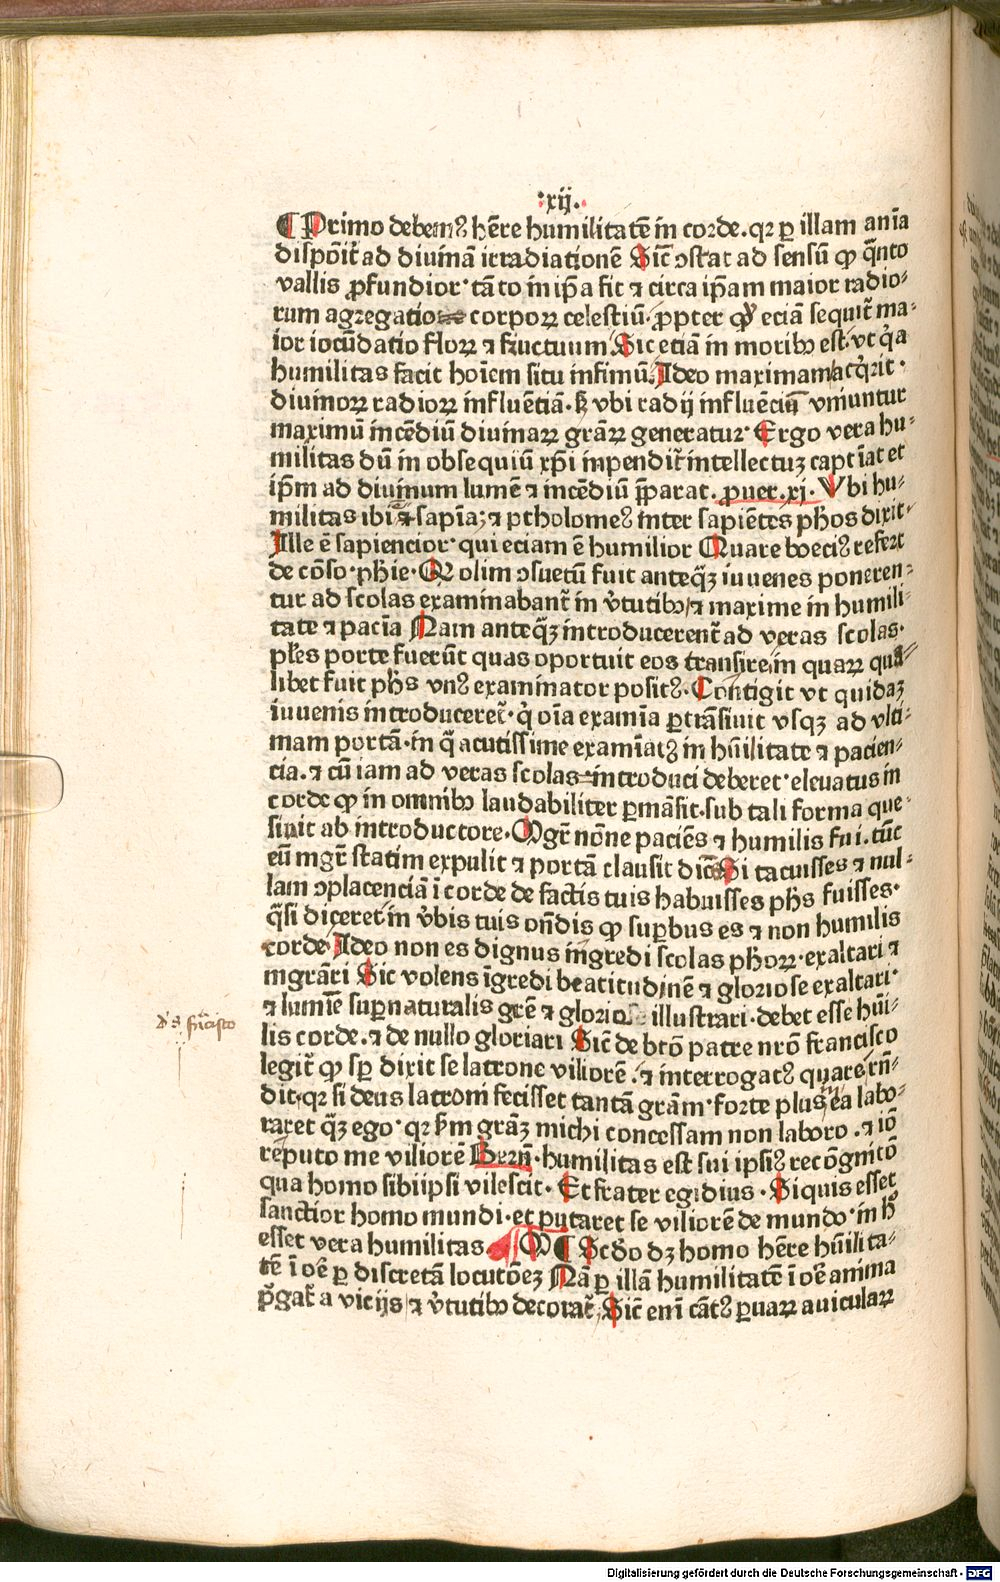 :xij.
¶ Primo debemꝰ hēre humilitatē in corde. qꝛ ꝑ illam aīa
dispōit̄ ad diuinā irradiationē Sic̄ ↄstat ad sensū ꝙ q̄nto
vallis ꝓfundior· tāto in ip̄a fit ⁊ circa ip̄am maior radio⸗
rum agregatio corpoꝝ celestiū· ꝓpter qḋ eciā sequit̄ ma⸗
ior iocūdatio floꝝ ⁊ fructuum Sic etiā in moribꝰ est· vt q̇a
humilitas facit hoīem situ infimū· Ideo maximam acq̇rit·
diuinoꝝ radioꝝ influētiā· sꝫ vbi radij influēciū vniuntur
maximū incēdiū diuinaꝝ grāꝝ generatur· Ergo vera hu⸗
militas dū in obsequiū xp̄i inpendit̄ intellectuꝫ captīat et
ip̄m ad diuinum lumē ⁊ incēdiū p̄parat. ꝓuer. xi. Vbi hu⸗
militas ibi ⁊ sapīa; ⁊ ptholomeꝰ inter sapiētes ph̄os dixit·
Ille ē sapiencior· qui eciam ē humilior Quare boeciꝰ refert
de cōso· phie· Q olim ↄsuetū fuit anteq̄ꝫ iuuenes poneren⸗
tur ad scolas examinabant̄ in v̇tutibꝰ ⁊ maxime in humili⸗
tate ⁊ pacīa Nam anteq̄ꝫ introducerent̄ ad veras scolas·
pl̄es porte fuerūt quas oportuit eos transire in quaꝝ qua⸗
libet fuit ph̄s vnꝰ examinator positꝰ· Contigit vt quidaꝫ
iuuenis introduceret̄· q̇ oīa examīa ꝑtrāsiuit vsqꝫ ad vlti⸗
mam portā· in q̄ acutissime examīatꝰ in hūilitate ⁊ pacien⸗
cia. ⁊ cū iam ad veras scolas introduci deberet· eleuatus in
corde ꝙ in omnibꝰ laudabiliter ꝑmāsit. sub tali forma que⸗
siuit ab introductore· Mgr̄ nōne paciēs ⁊ humilis fui. tūc
eū mgr̄ statim expulit ⁊ portā clausit dic̄ Si tacuisses ⁊ nul⸗
lam ↄplacenciā ī corde de factis tuis habuisses ph̄s fuisses·
q̄si diceret in v̇bis tuis on̄dis ꝙ suꝑbus es ⁊ non humilis
corde Ideo non es dignus ingredi scolas ph̄oꝝ· exaltari ⁊
ingrāri Sic volens īgredi beatitudinē ⁊ gloriose exaltari·
⁊ lumīe suꝑnaturalis grē ⁊ gloriose illustrari· debet esse hūi⸗
lis corde. ⁊ de nullo gloriari Sic̄ de btō patre nrō francisco
legit̄ ꝙ sꝑ dixit se latrone viliorē. ⁊ interrogatꝰ quare rn̄⸗
dit· qꝛ si deus latroni fecisset tantā grām· forte plus in ea labo⸗
raret q̄ꝫ ego· qꝛ sm̄ grāꝫ michi concessam non laboro. ⁊ iō
reputo me viliorē Bern̄· humilitas est sui ipsiꝰ recōgnitō
qua homo sibiipsi vilescit· Et frater egidius· Siquis esset
sanctior homo mundi· et putaret se viliorē de mundo· in hͦ
esset vera humilitas. ¶ Scḋo dꝫ homo hēre hūilita⸗
tē ī oē ꝑ discretā locutōeꝫ Nā ꝑ illā humilitatē ī oē anima
p̄gat̄ a vicijs ⁊ v̇tutibꝰ decorat̄; Sic̄ eni cātꝰ ꝑuaꝝ auiculaꝝ
d' s. frācisco
Digitalisierung gefördert durch die Deutsche Forschungsgemeinschaft · DFG